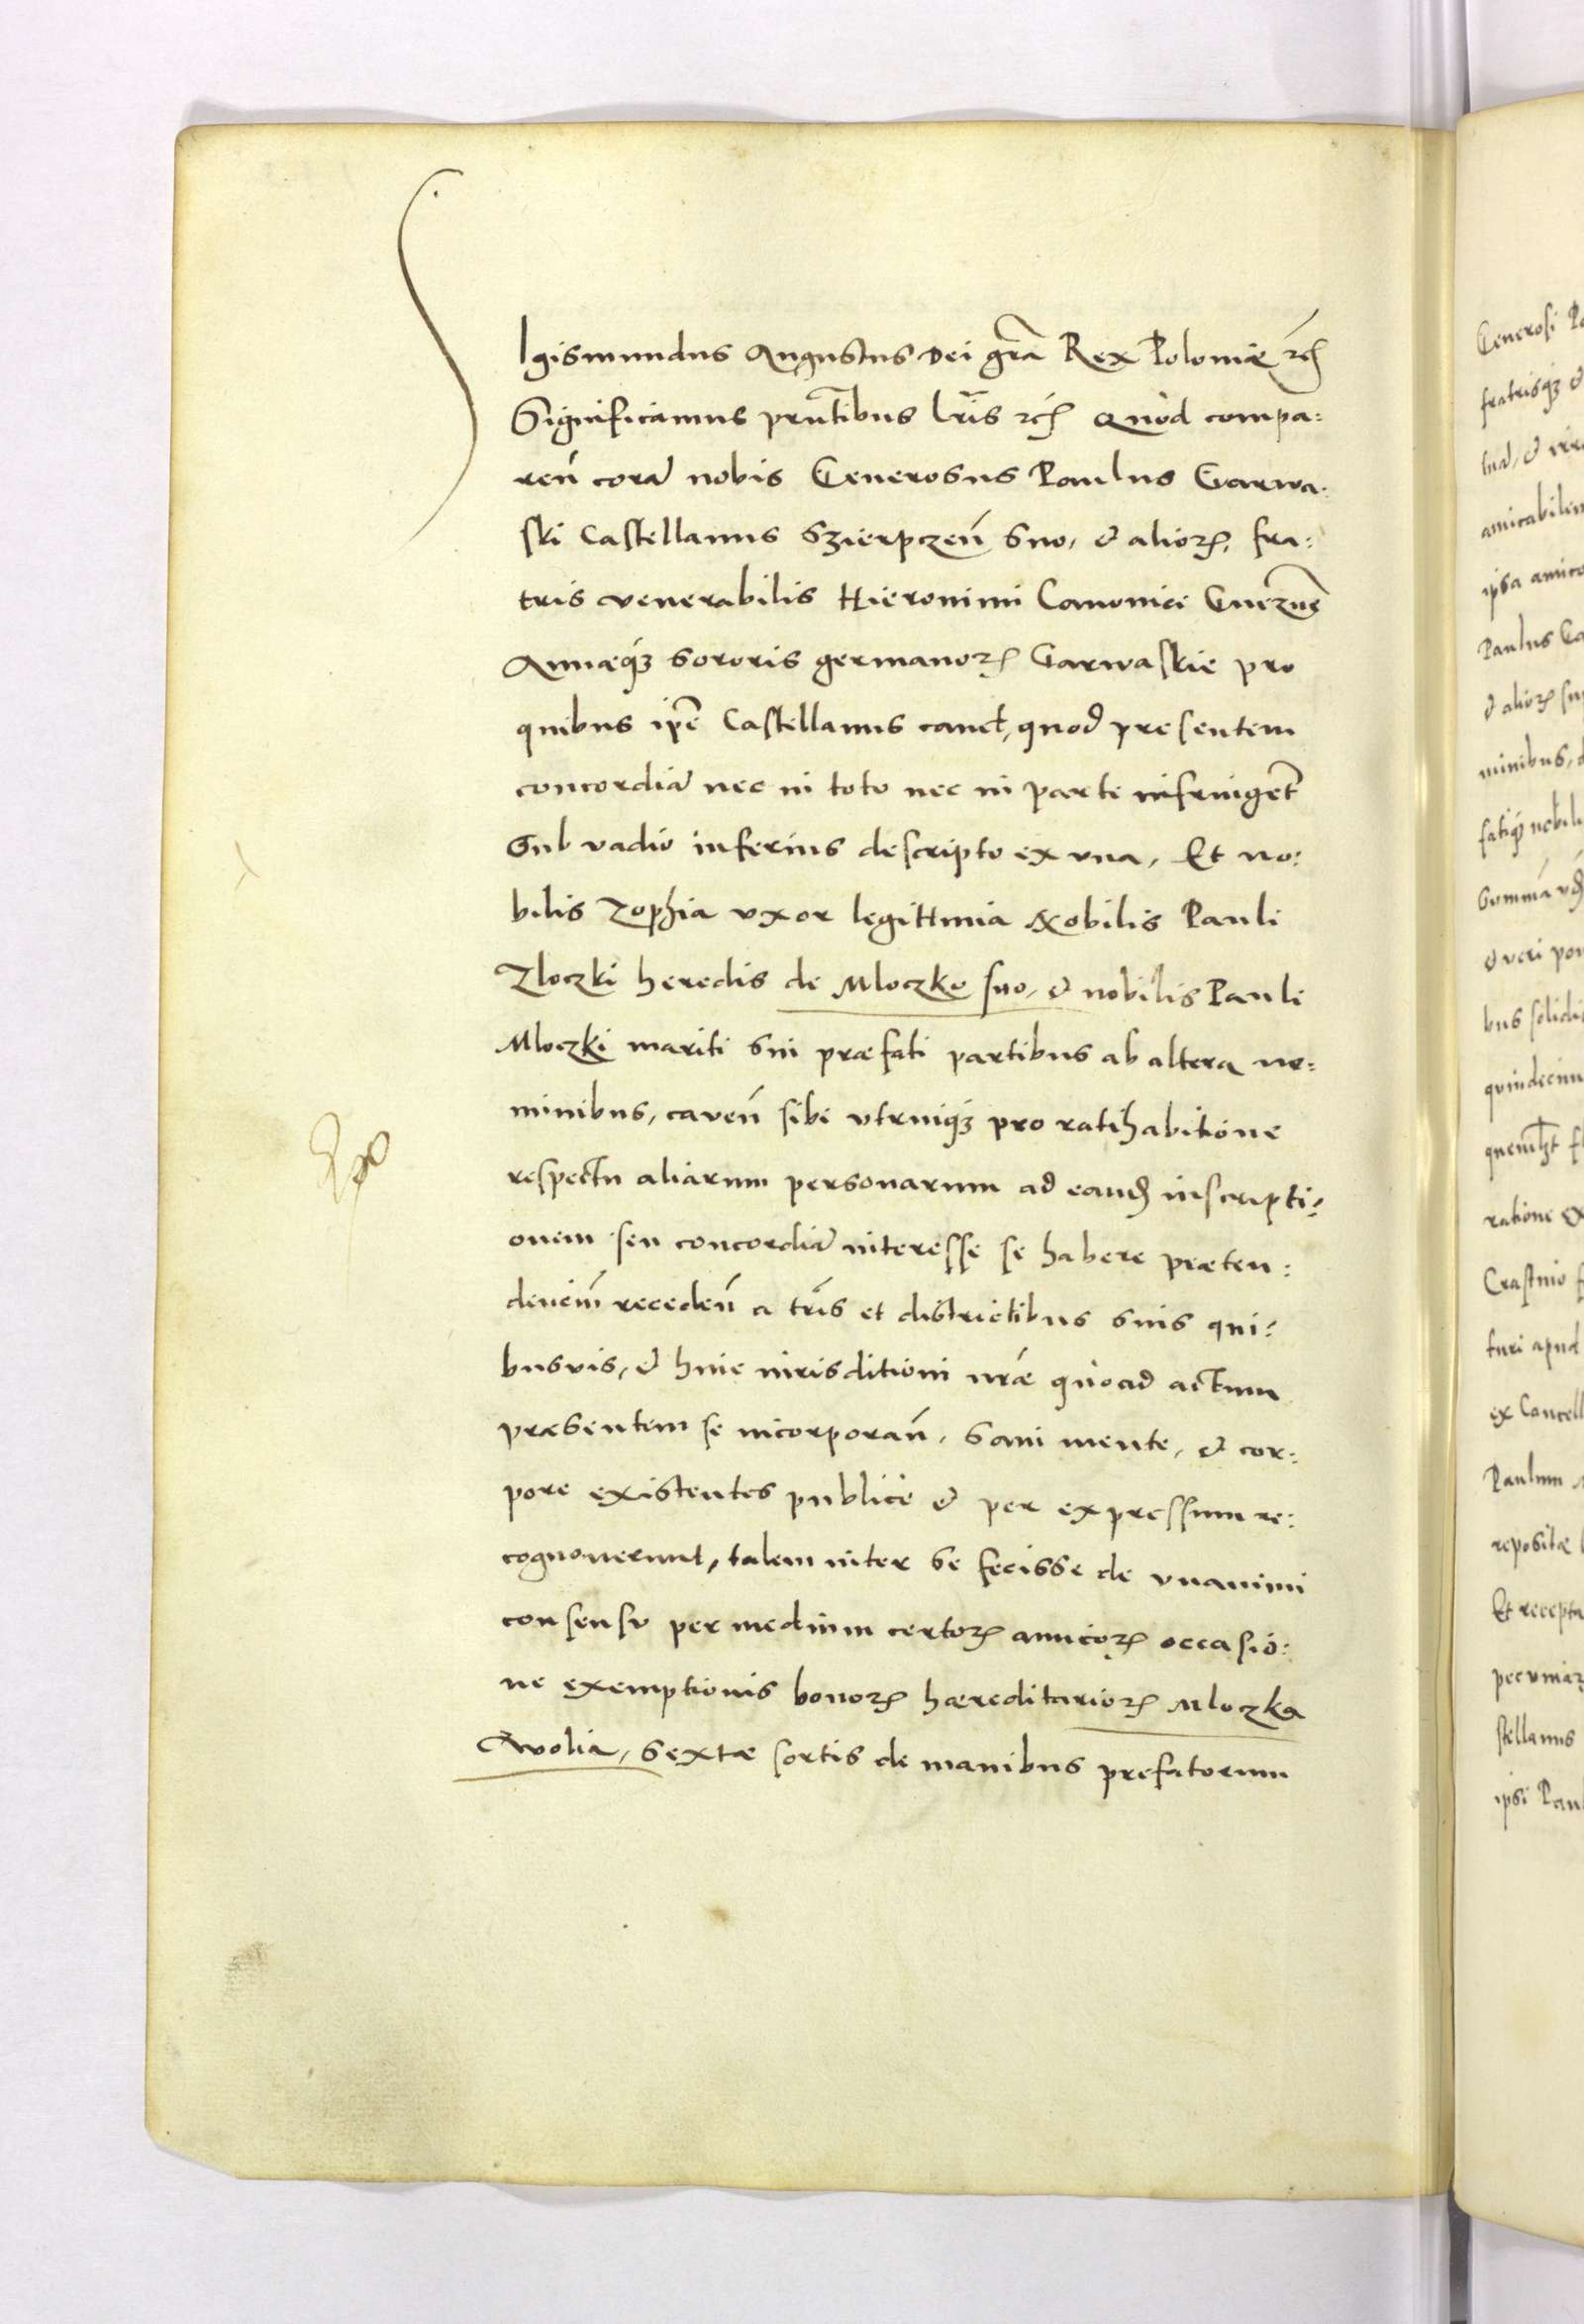 Sigismundus Augustus Dei gr̃a Rex Poloniæ ꝛc̃
Significamus prñtibus lr̃is ꝛc̃ Quod compa:
reñ corã nobis Generosus Paulus Garwa:
ski Castellanus Szierpczeñ suo, & alioꝝ, fra:
tris venerabilis Hieronimi Canonici Gnezneñ
Annæqꝫ sororis germanoꝝ Garwaskie pro
quibus ip̃e Castellanus cauet, quod presentem
concordiã nec in toto nec in parte infringet
Sub vadio inferius descripto ex una, Et no:
bilis Zophia uxor legittima Nobilis Pauli
Zloczki heredis de Mloczko suo, & nobilis Pauli
Mloczki mariti sui præfati partibus ab altera no:
minibus, caveñ sibi utrinqꝫ pro ratihabitione
respectu aliarum personarum ad eand̃ inscripti:
onem seu concordiã interesse se habere præten:
denciũ recedeñ a tr̃is et districtibus suis qui:
busvis, & huic iurisditioni nr̃æ quoad actum
præsentem se incorporañ, sani mente, & cor:
pore existentes publice & per expressum re:
cognouerunt, talem inter se fecisse de unanimi
consensu per medium certoꝝ amicoꝝ occasio:
ne exemptionis bonoꝝ hæreditarioꝝ Mloczka
Wolia, sextæ sortis de manibus prefatorum
Generosi
fratrisqꝫ &
amicabilem
ipsa amico
Paulus Ga
& alioꝝ su
minibus,
fatiqꝫ nobili
Summã
& veri
bus solidi
quindecim
ratione
Crastino
turi apud
ex Cancell
Paulum
repositæ
Et recepta
stellanus
ipsi Paul